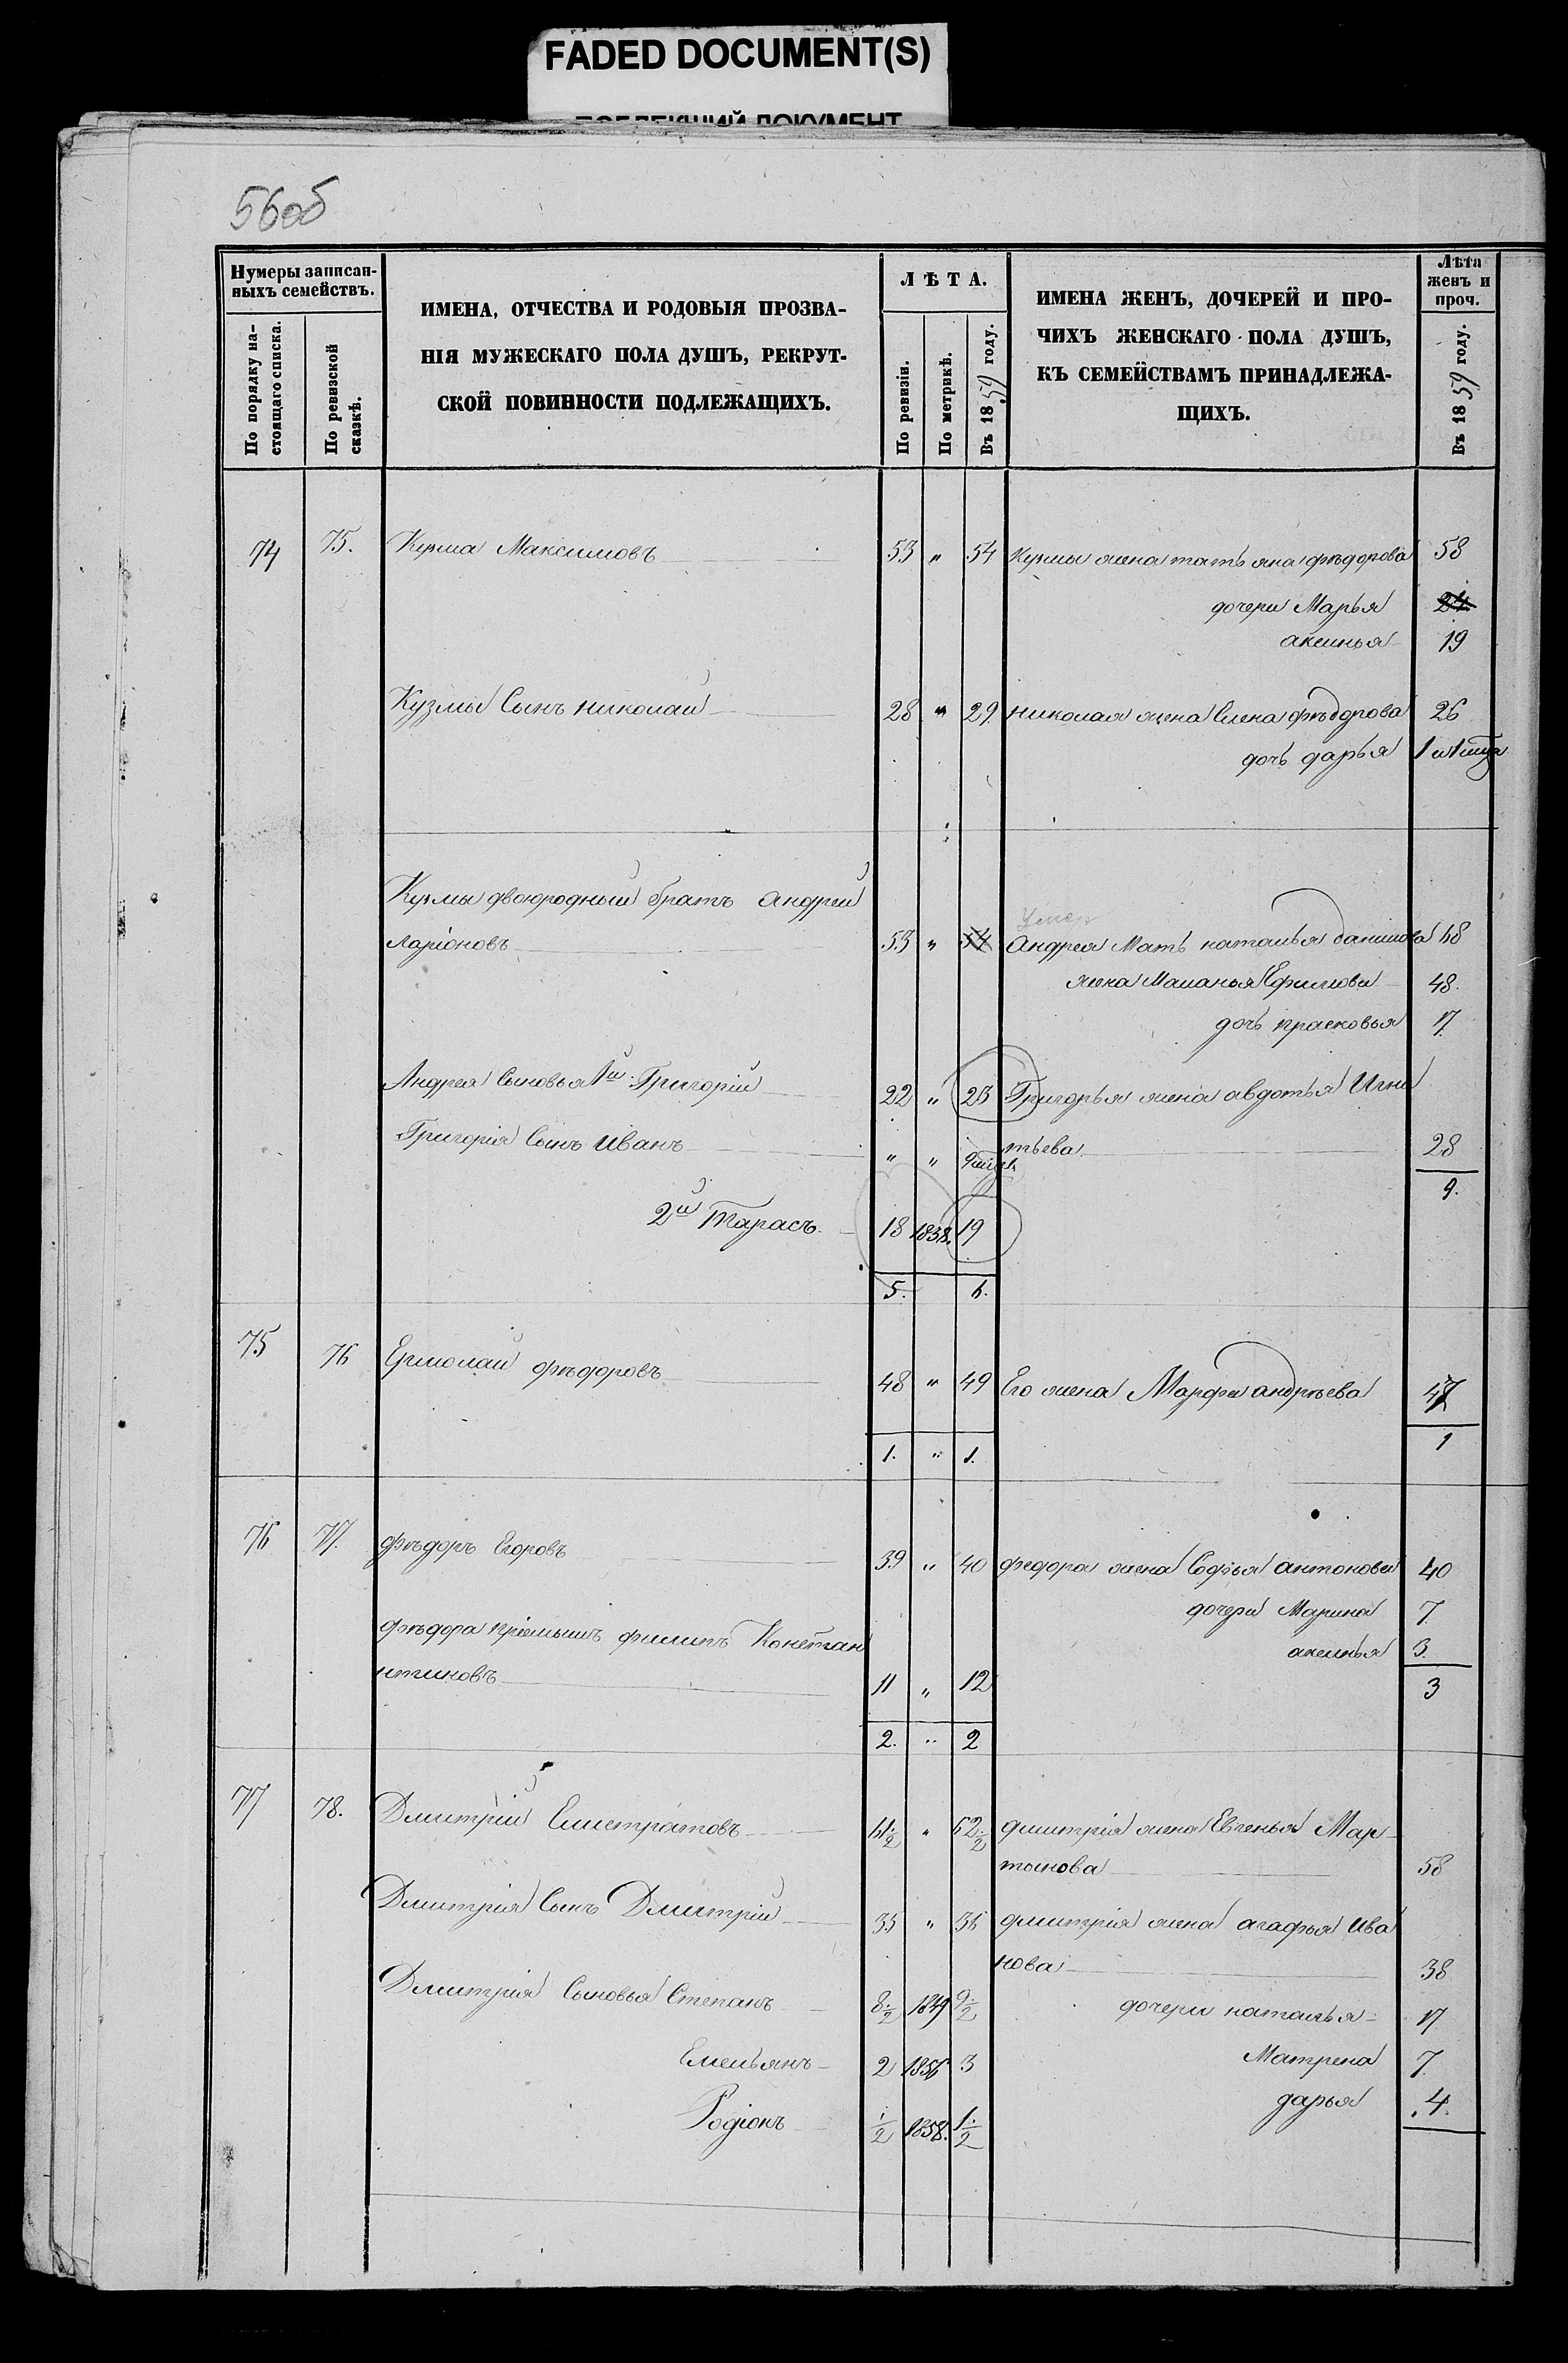 FADED DOCUMENT(S)
ПОБЛЕКШИЙ ДОКУМЕНТ
56об
Нумеры записан-
ныхъ семействъ.
По порядку на-
стоящаго списка.
По ревизской
сказкѣ.
ИМЕНА, ОТЧЕСТВА И РОДОВЫЯ ПРОЗВА-
НІЯ МУЖЕСКАГО ПОЛА ДУШЪ, РЕКРУТ-
СКОЙ ПОВИННОСТИ ПОДЛЕЖАЩИХЪ.
ЛѢТА.
По ревизіи.
По метрикѣ.
Въ 1859 году.
ИМЕНА ЖЕНЪ, ДОЧЕРЕЙ И ПРО-
ЧИХЪ ЖЕНСКАГО ПОЛА ДУШЪ,
КЪ СЕМЕЙСТВАМЪ ПРИНАДЛЕЖА-
ЩИХЪ.
Лѣта
женъ и
проч.
Въ 1859 году.
74 75. Кузма Максимовъ 53 " 54 Кузмы жена татьяна фѣдорова 58
дочери Марья 24
аксинья 19
Кузмы Сынъ николай 28 " 29 николая жена Елена фѣдорова 26
дочь дарья
Кузмы двоюродный братъ андрей
Умер
ларіоновъ 53 " 54 андрея Мать наталья данилова
жена Маланья Ефимова 48.
дочь прасковья 17.
Андрея Сыновья 1й Григорій 22 " 23 Григорья жена авдотья Игна
Григорія Сынъ Иванъ " " тьева 28
9.
2й Тарасъ 18 1838. 19
5. 6.
75 76 Ермолай фѣдоровъ 48 " 49 Его жена Марфа андрѣева 47
1. " 1. 1
76 77. фѣдоръ Егоровъ 39 " 40 федора жена Софья антонова 40
дочери Марина 7.
фѣдора пріемышъ филипъ Констан
аксинья 3.
нтиновъ 11 " 12
3
2. " 2
77 78. Дмитрій Елистратовъ 61½ " 62½ дмитрія жена Евгенья Мар-
тынова 58
Дмитрія Сынъ Дмитрій 35 " 36 дмитрія жена агафья ива
нова 38
Дмитрія Сыновья Степанъ 8½ 1849 9½ дочери наталья 17
Емельянъ 2 1856 3 Матрена 7.
дарья 4.
Родіонъ ½ 1858. 1½